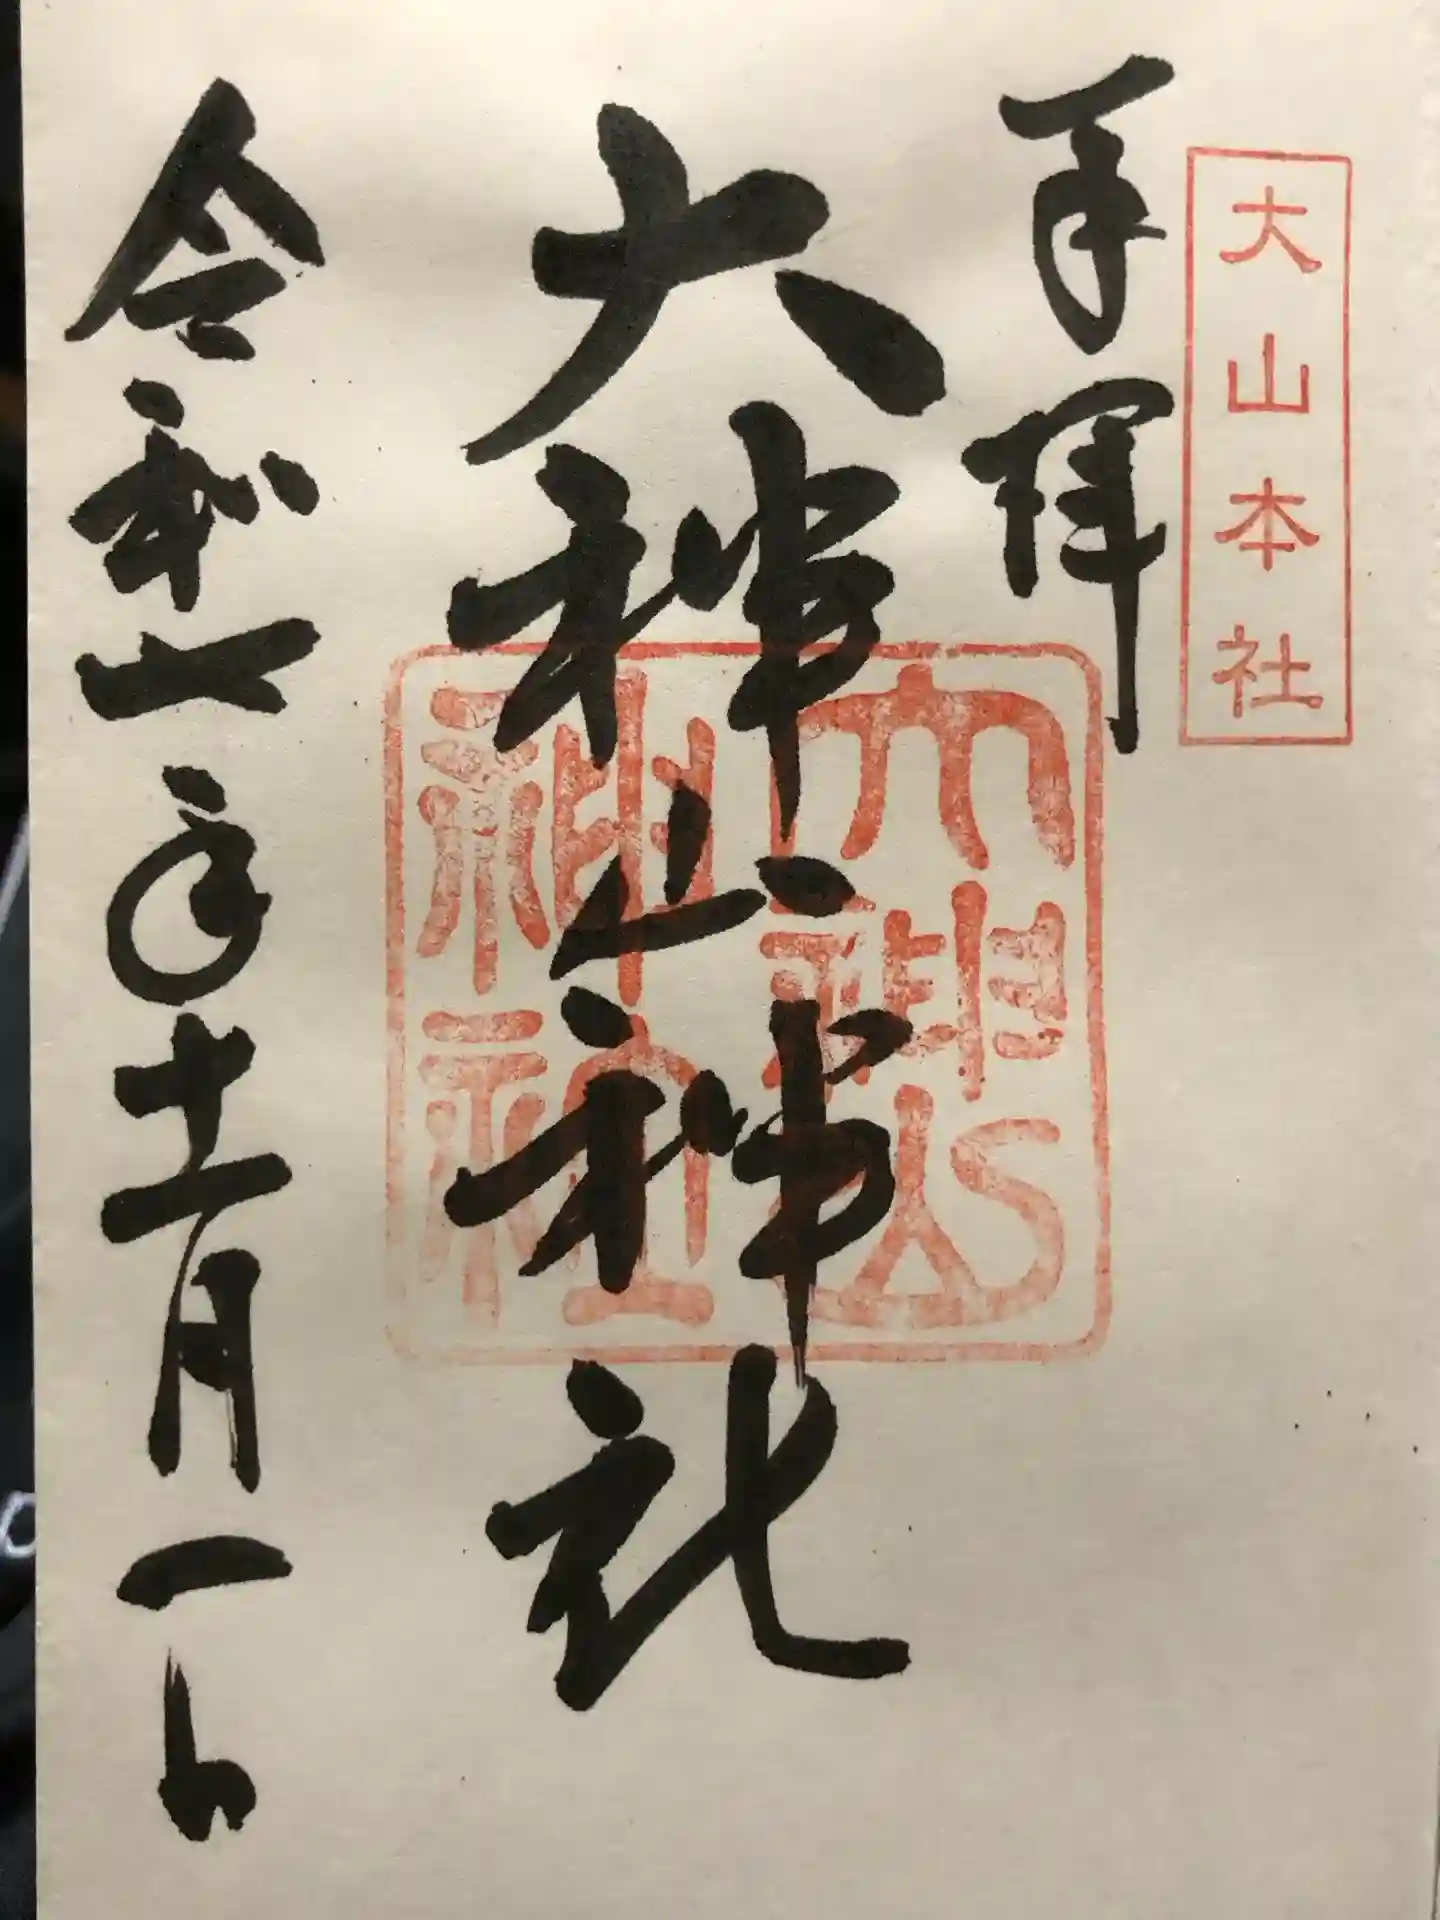 大山本社
奉拝
大神山神社
大神山神社
令和 年十一月一日